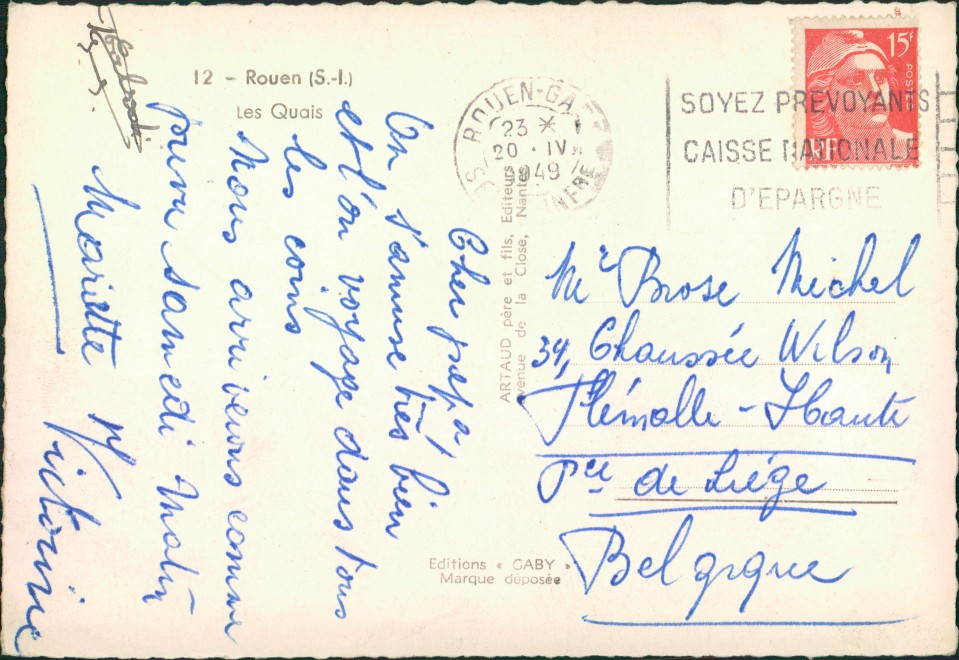 12 - Rouen (S.-I.)
Les Quais
Cher pepa
On s'amuse très bien
et l'on voyage dans tous
les coins
Nous arriverons comme
prévu samedi matin
Mariette
Victorine
ROUEN-GARE
23 *
20 . IV
1949
SEINE INFRE
SOYEZ PREVOYANTS
CAISSE NATIONALE
D'EPARGNE
15F
POSTES
RF
Mr Brose Michel
39, Chaussée Wilson
Flémalle-Haute
Pce de Liége
Belgique
ARTAUD père et fils, Editeurs
avenue de la Close, Nantes
Editions « GABY »
Marque déposée